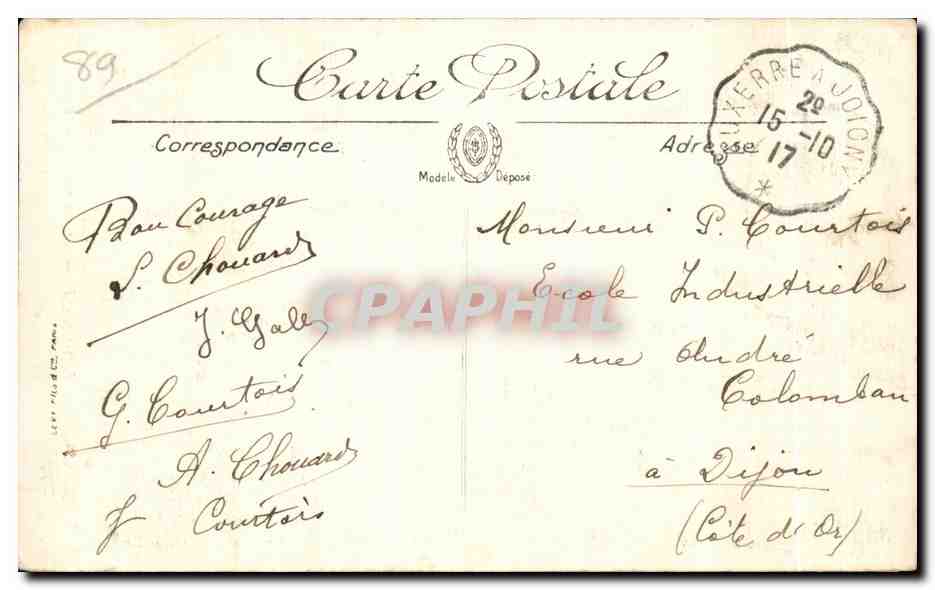 89
Carte Postale
AUXERRE A JOIGNY
2º
15 -10
17
*
Correspondance
Adresse
Modèle Déposé
Bon Courage
S. Chouard
J. Galley
G. Courtois
A. Chouard
J Courtois
Monsieur P. Courtois
Ecole Industrielle
rue André
Colomban
à Dijon
(Côte d'Or)
LEVY FILS & Cie, PARIS
CPAPHIL